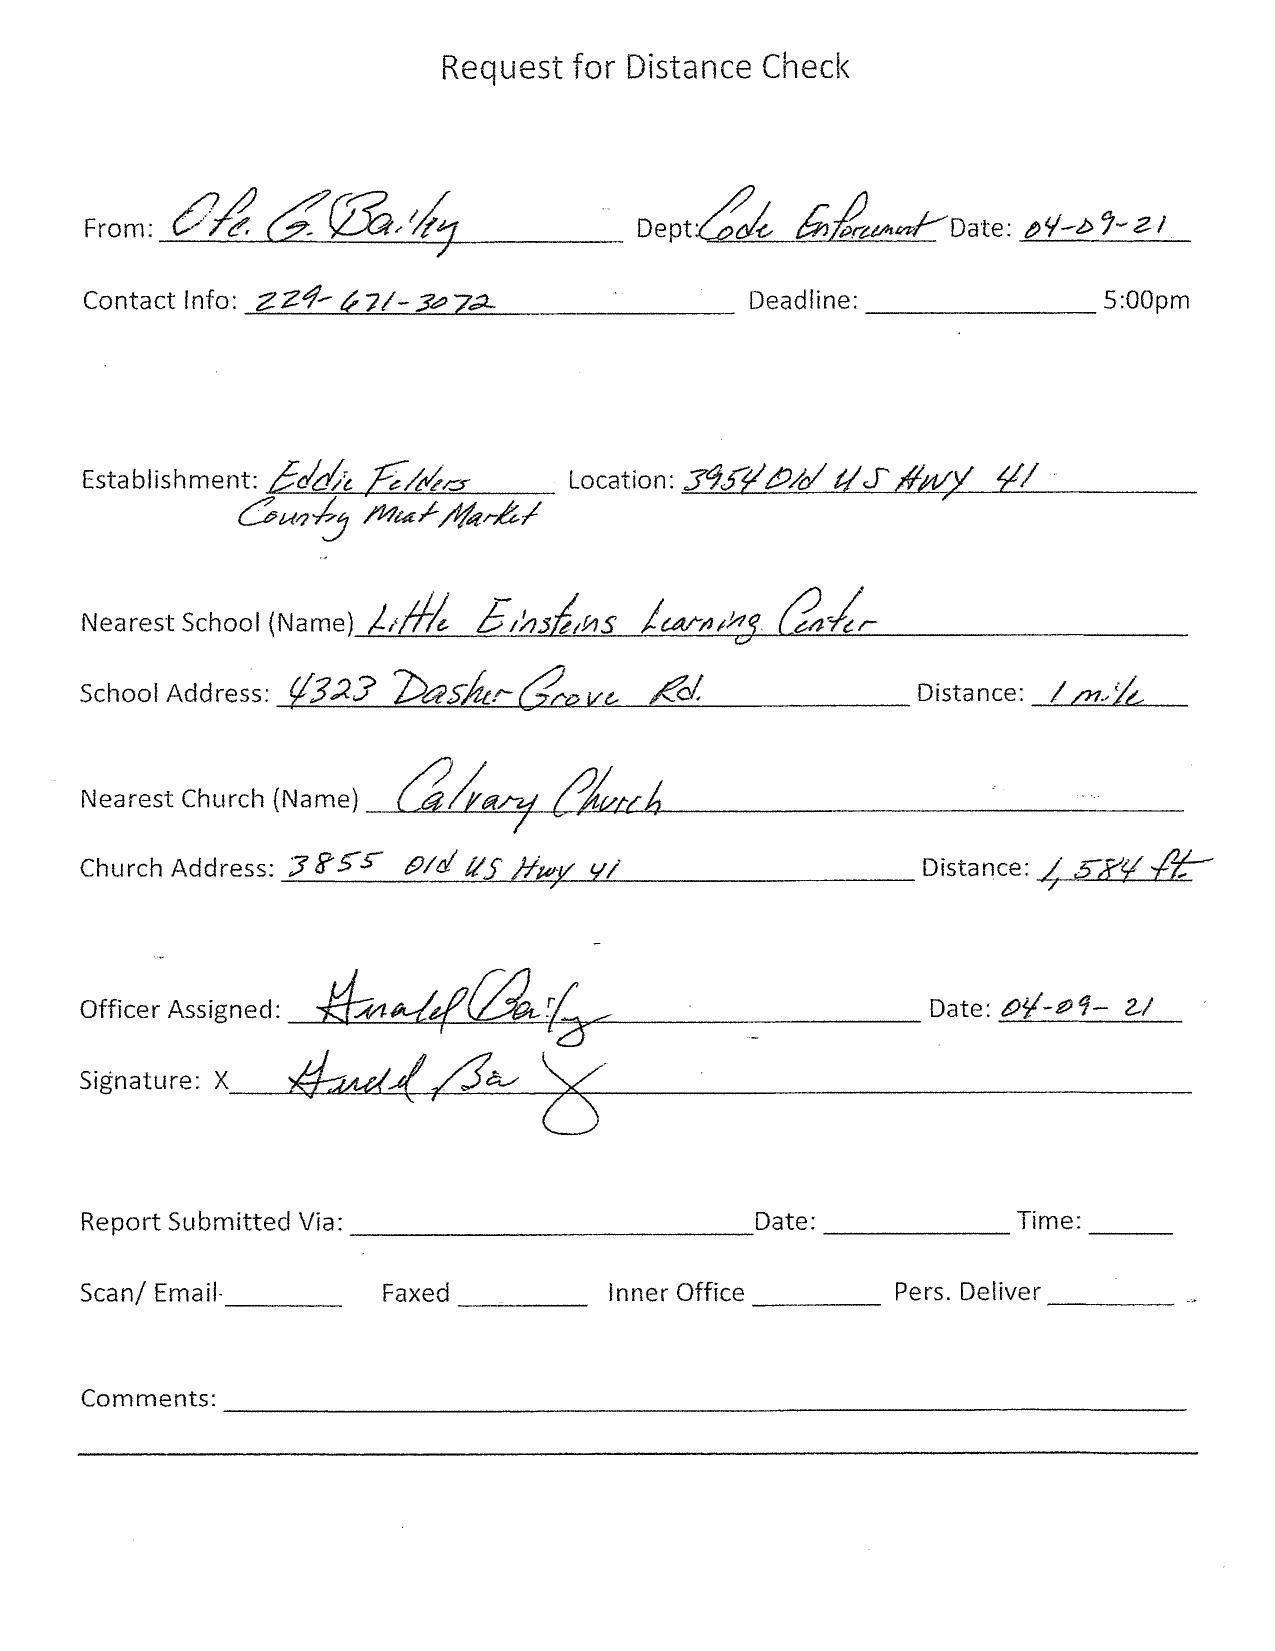 Request for Distance Check
From: Ofc. G. Bailey Dept: Code Enforcement Date: 04-09-21
Contact Info: 229-671-3072 Deadline: 5:00pm
Establishment: Eddie Felders Location: 3954 Old US HWY 41
Country Meat Market
Nearest School (Name) Little Einsteins Learning Center
School Address: 4323 Dasher Grove Rd. Distance: 1 mile
Nearest Church (Name) Calvary Church
Church Address: 3855 Old US Hwy 41 Distance: 1,584 ft.
Officer Assigned: Bailey Date: 04-09-21
Signature: X
Report Submitted Via: Date: Time:
Scan/ Email Faxed Inner Office Pers. Deliver
Comments: